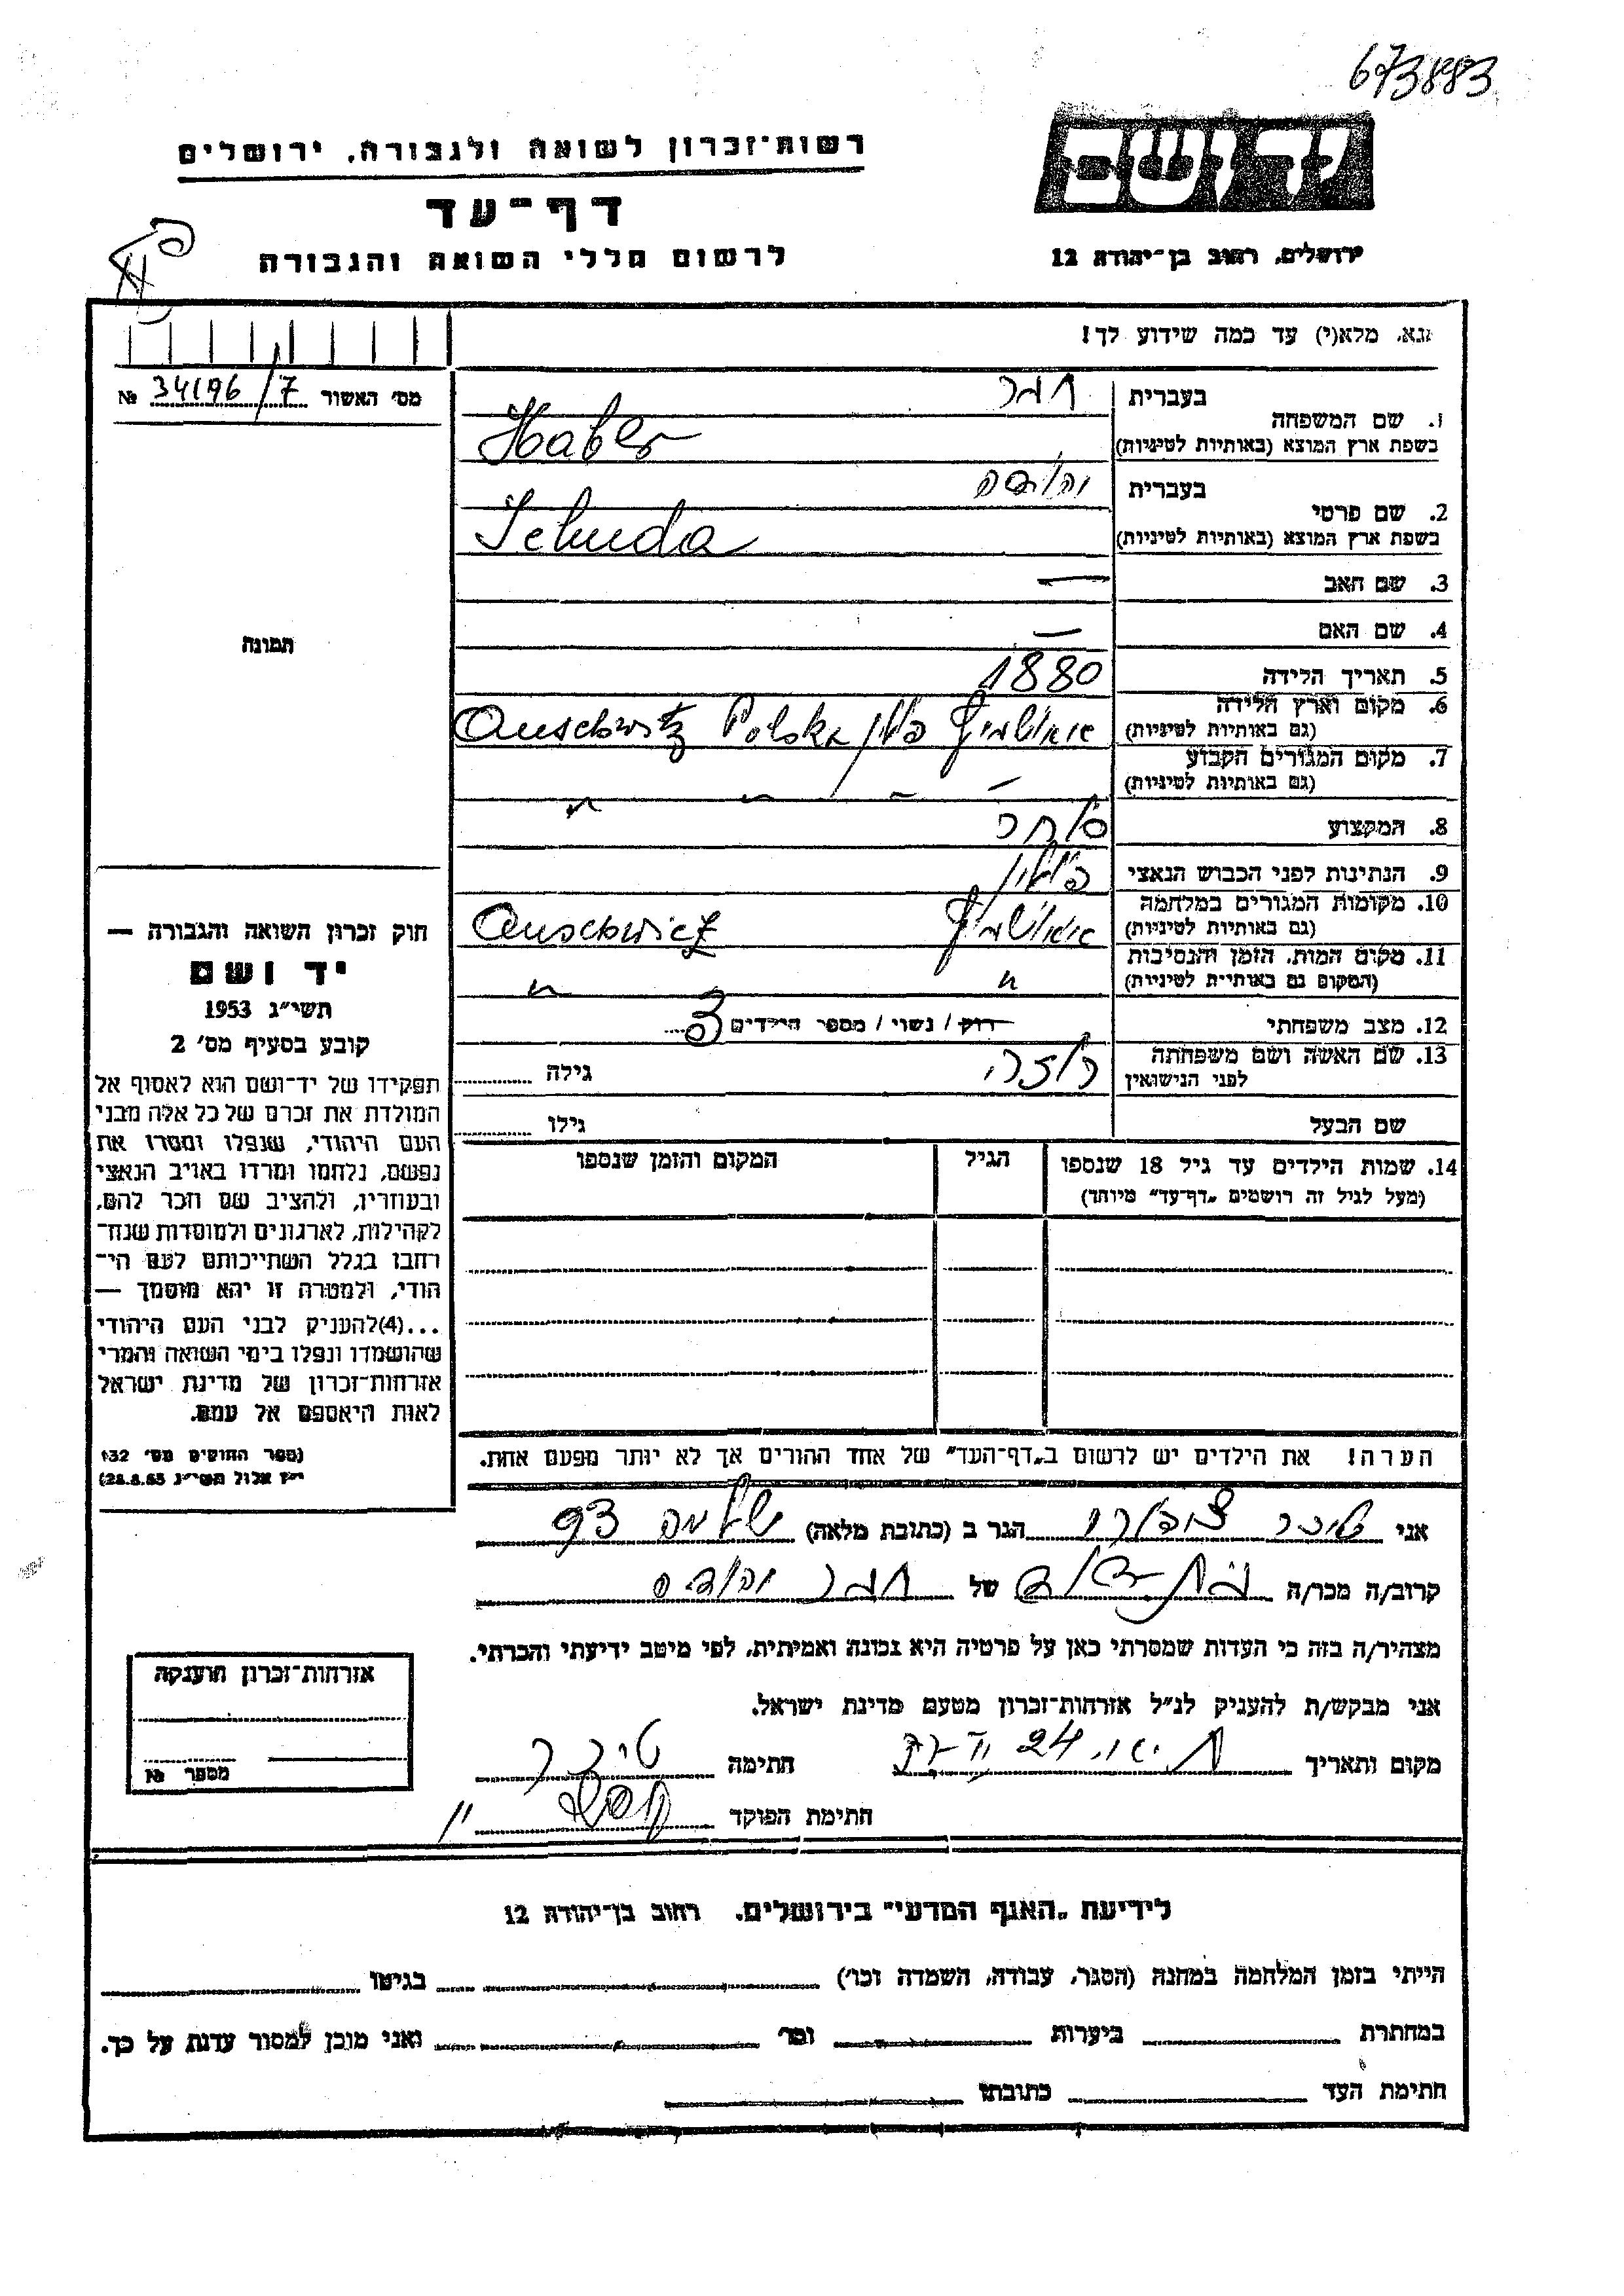 673883
רשות־זכרון לשואה ולגבורה, ירושלים
דף־עד
לרשום חללי השואה והגבורה
יד ושם
ירושלים, רחוב בן־יהודה 12
נא, מלא(י) עד כמה שידוע לך!
מס׳ האשור 34196/7 №
1. שם המשפחה
בעברית הבר
בשפת ארץ המוצא (באותיות לטיניות) Haber
2. שם פרטי
בעברית יהודה
בשפת ארץ המוצא (באותיות לטיניות) Jehuda
3. שם האב —
4. שם האם —
תמונה
5. תאריך הלידה 1880
6. מקום וארץ הלידה
(גם באותיות לטיניות) אואושויץ פולין Auschwitz Polska
7. מקום המגורים הקבוע
(גם באותיות לטיניות) " "
8. המקצוע סוחר
9. הנתינות לפני הכבוש הנאצי פולין
10. מקומות המגורים במלחמה
(גם באותיות לטיניות) אואושויץ Auschwitz
11. מקום המות, הזמן והנסיבות
(המקום גם באותיית לטיניות) " "
12. מצב משפחתי רוק / נשוי / מספר הילדים 3
13. שם האשה ושם משפחתה
לפני הנישואין רוזה גילה
שם הבעל גילו
14. שמות הילדים עד גיל 18 שנספו הגיל המקום והזמן שנספו
(מעל לגיל זה רושמים „דף־עד״ מיוחד)
חוק זכרון השואה והגבורה —
יד ושם
תשי״ג 1953
קובע בסעיף מס׳ 2
תפקידו של יד־ושם הוא לאסוף אל
המולדת את זכרם של כל אלה מבני
העם היהודי, שנפלו ומסרו את
נפשם, נלחמו ומרדו באויב הנאצי
ובעוזריו, ולהציב שם וזכר להם,
לקהילות, לארגונים ולמוסדות שנח־
רחבו בגלל השתייכותם לעם הי־
הודי, ולמטרה זו יהא מוסמך —
...(4)להעניק לבני העם היהודי
שהושמדו ונפלו בימי השואה והמרי
אזרחות־זכרון של מדינת ישראל
לאות היאספם אל עמם.
(ספר החוקים מס׳ 132
י״ז אלול תשי״ג 28.8.53)
הערה! את הילדים יש לרשום ב„דף־העד״ של אחד ההורים אך לא יותר מפעם אחת.
אני הגר ב (כתובת מלאה) שלמה 93
קרוב/ה מכר/ה של הבר יהודה
מצהיר/ה בזה כי העדות שמסרתי כאן על פרטיה היא נכונה ואמיתית, לפי מיטב ידיעתי והכרתי.
אני מבקש/ת להעניק לנ״ל אזרחות־זכרון מטעם מדינת ישראל.
מקום ותאריך חתימה
חתימת הפוקד
אזרחות־זכרון הוענקה
מספר №
לידיעת „האגף המדעי״ בירושלים, רחוב בן־יהודה 12
הייתי בזמן המלחמה במחנה (הסגר, עבודה, השמדה וכו׳) בגיטו
במחתרת ביערות וכו׳ ואני מוכן למסור עדות על כך.
חתימת העד כתובתו